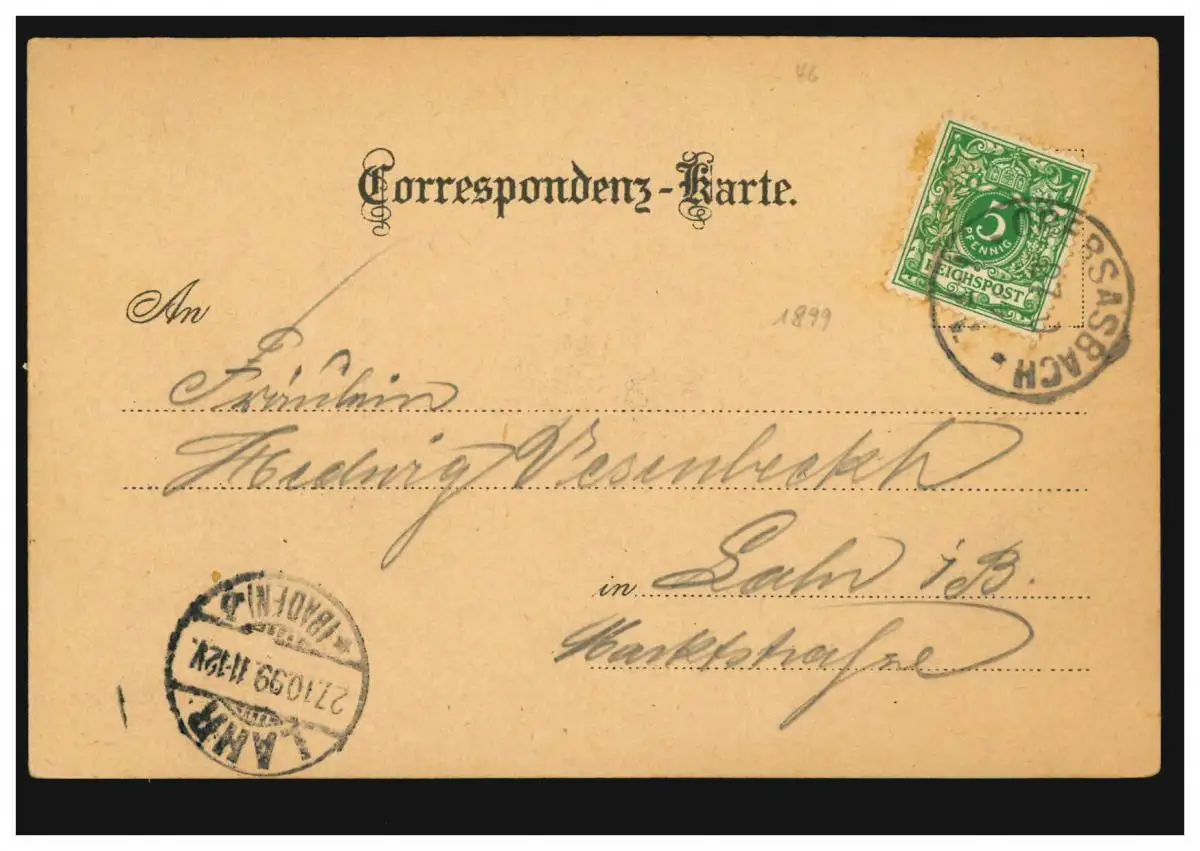 46
Correspondenz-Karte.
5
PFENNIG
REICHSPOST
OBERSASBACH
An
1899
Fräulein
Hedwig Vesenbeckh
in Lahr i/B.
Marktstraße
*(BADEN)*
27.10.99.11-12V.
LAHR